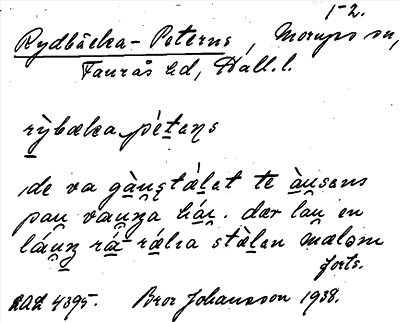 1-2.
Rydbäcka-Peterns, Morups sn,
Faurås hd, Hall.l.
rỳbæka pètæņs
de va gàu̯stálat te àu̯sens
pau̯ vau̯za háu̯. dær lau̯ en
láu̯z rá-rálra stàlen mælom
forts.
AAL 4395. Bror Johansson 1938.